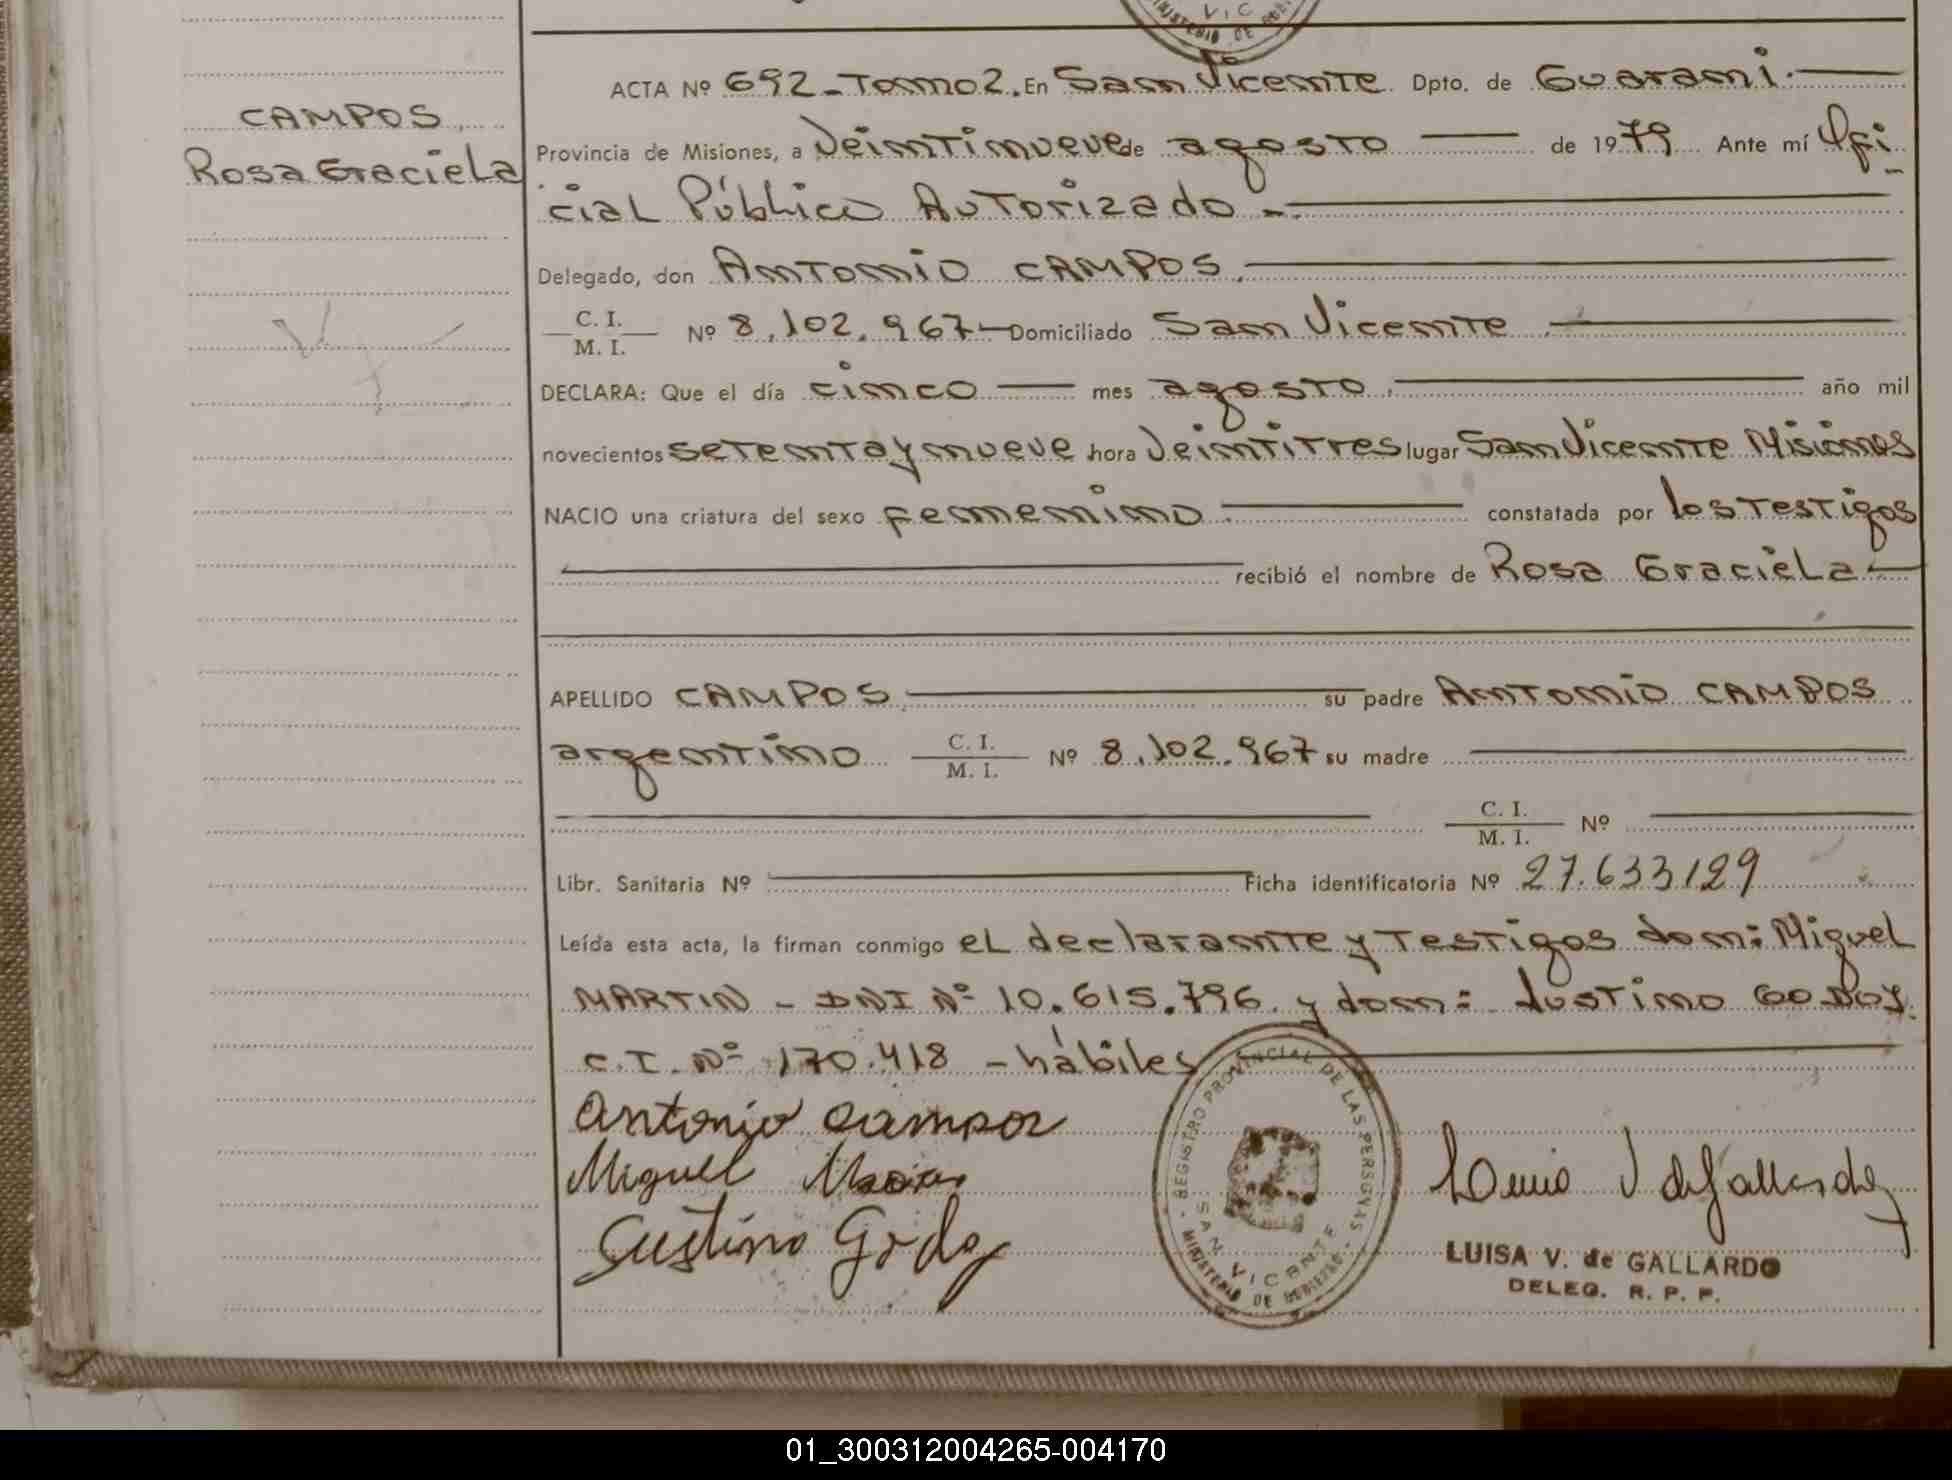 VIC
MINISTERIO DE
ACTA Nº 692 - Tomo 2. En San Vicente Dpto. de Guarani.
CAMPOS
Rosa Graciela
Provincia de Misiones, a Veintinueve de agosto de 1979 Ante mí Ofi-
cial Público Autorizado -.
Delegado, don Antonio CAMPOS.
C. I.
M. I. Nº 8.102.967- Domiciliado San Vicente
DECLARA: Que el día cinco mes agosto. año mil
novecientos setenta y nueve hora Veintitres lugar San Vicente Misiones
NACIO una criatura del sexo femenino constatada por los testigos
recibió el nombre de Rosa Graciela
APELLIDO CAMPOS su padre Antonio CAMPOS
argentino C. I.
M. I. Nº 8.102.967 su madre
C. I.
M. I. Nº
Libr. Sanitaria Nº Ficha identificatoria Nº 27.633129
Leída esta acta, la firman conmigo el declarante y testigos don: Miguel
MARTIN - DNI Nº 10.615.796 y don: Justino GODOY.
C.I. Nº 170.418 - hábiles
Antonio Campos
Miguel
Justino Godoy
REGISTRO PROVINCIAL DE LAS PERSONAS
SAN VICENTE
MINISTERIO DE GOBIERNO
LUISA V. de GALLARDO
DELEG. R. P. P.
01_300312004265-004170